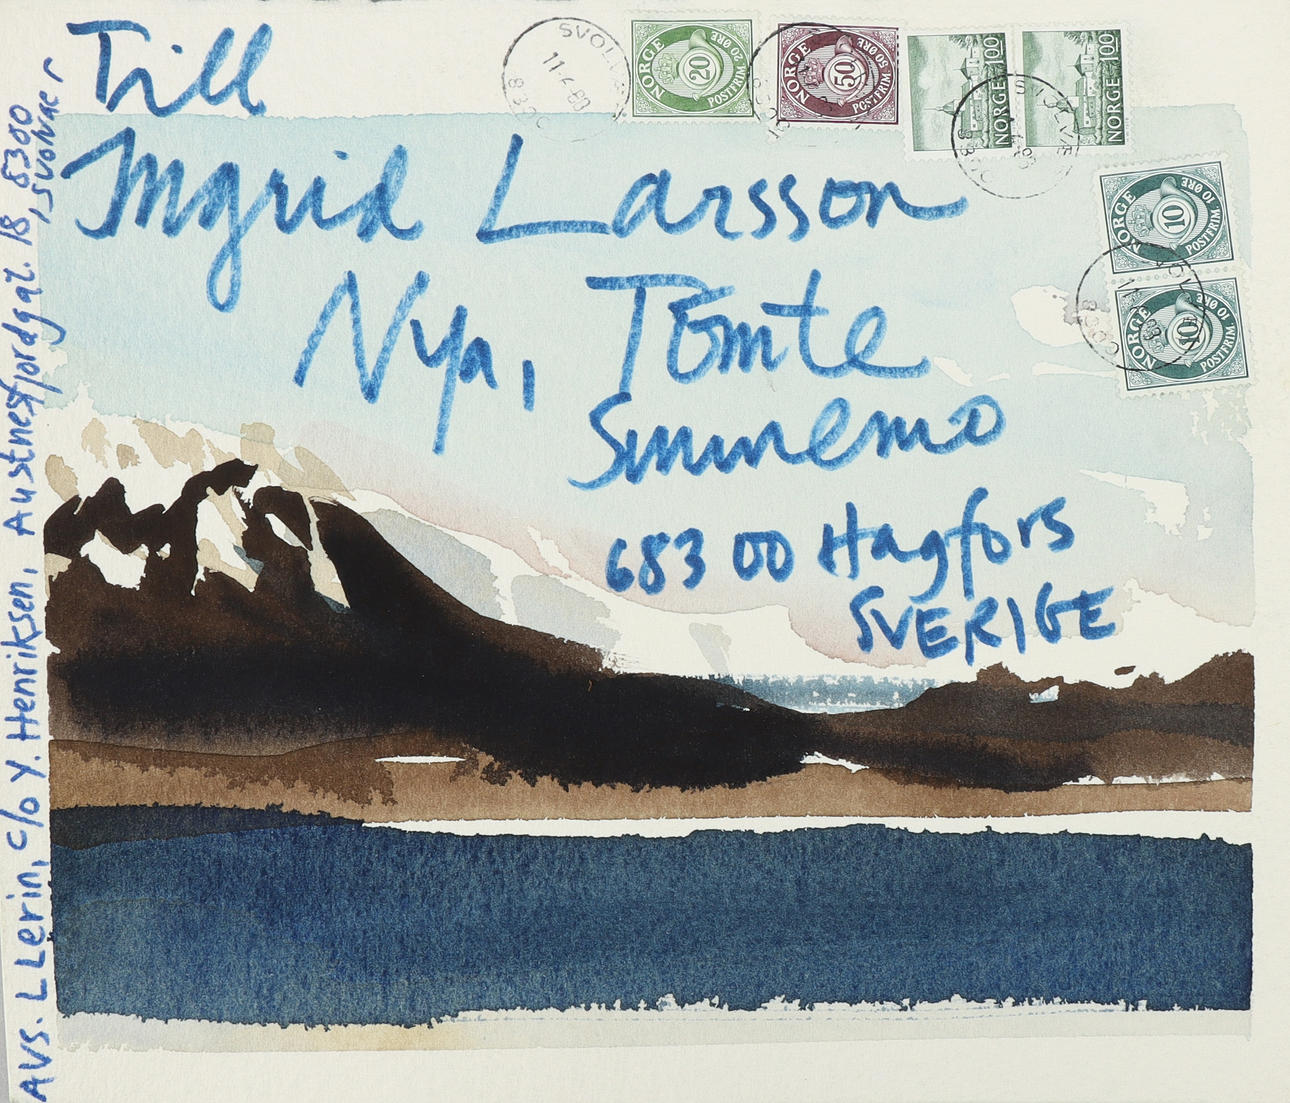 Till
Ingrid Larsson
Nya, Tomte
Sunnemo
683 00 Hagfors
SVERIGE
AVS. L Lerin, c/o Y. Henriksen, Austnesfjordgt. 18, 8300
SVOLVÆR
NORGE 20 POSTFRIM. 20 ØRE
NORGE 50 POSTFRIM. 50 ØRE
NORGE 100
NORGE 100
NORGE 10 POSTFRIM. 10 ØRE
NORGE 10 POSTFRIM. 10 ØRE